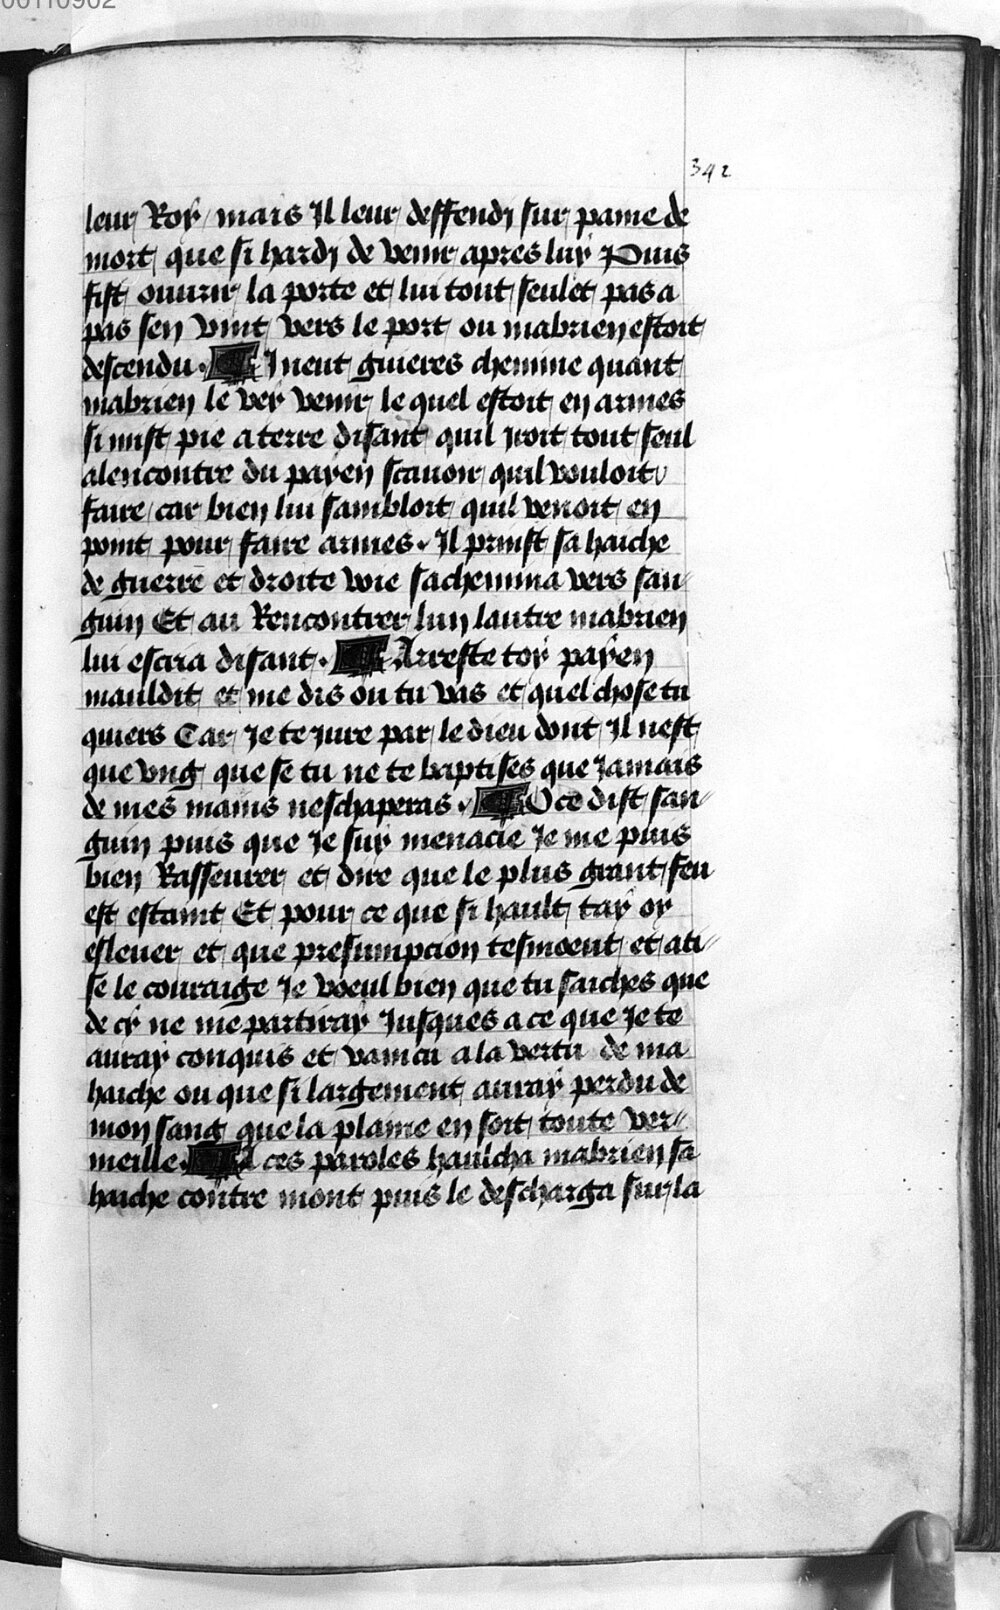 00110902
342
leur Roy / mais Il leur deffendj sur paine de
mort que si hardj de venir apres luy Puis
fist ouurir la porte et lui tout seulet pas a
pas sen vint vers le port ou mabrien estoit
descendu . Il neut guieres chemine quant
mabrien le vey venir le quel estoit en armes
si mist pie a terre disant quil yroit tout seul
alencontre du payen scauoir quil vouloit
faire car bien lui sambloit quil venoit en
point pour faire armes . Il prinst sa haiche
de guerre et droite voie sachemina vers san
guin Et au Rencontrer lun lautre mabrien
lui escria disant . Arreste toy payen
mauldit et me dis ou tu vas et quel chose tu
quiers Car Je te Jure par le dieu dont Il nest
que vng que se tu ne te baptises que Jamais
de mes mains neschaperas . O ce dist san
guin puis que Je suy menacie Je me puis
bien Rasseurer et dire que le plus grant feu
est estaint Et pour ce que si hault tay oy
esleuer et que presumpcion tesmoeut et ati
se le couraige Je voeul bien que tu saiches que
de cy ne me partiray Jusques a ce que Je te
auray conquis et vaincu a la vertu de ma
haiche ou que si largement auray perdu de
mon sang que la plaine en sort toute ver
meille . A ces paroles haulcha mabrien sa
haiche contre mont puis le descharga sur la